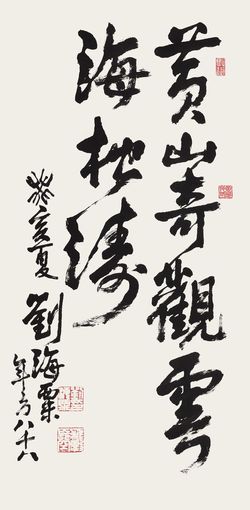 黄山奇觀雲
海松濤
癸亥夏 劉海粟
年方八十八